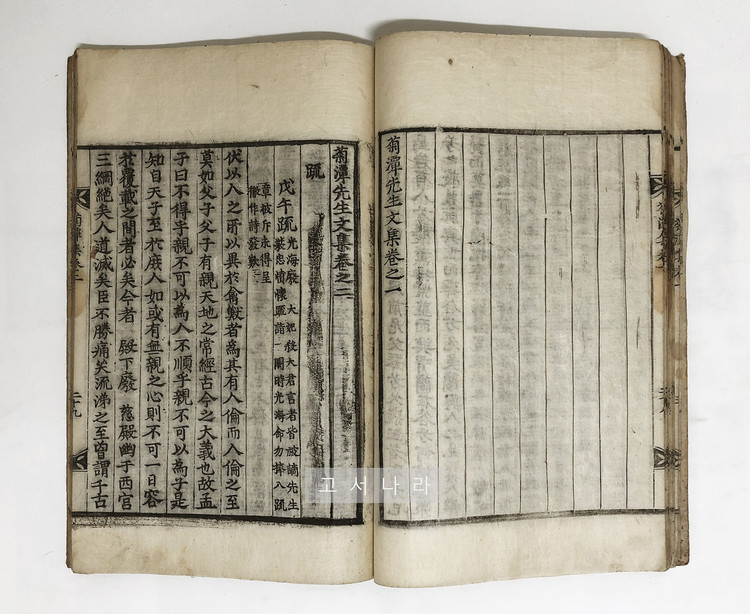 菊潭先生文集卷之一
菊潭先生文集卷之二
疏
戊午疏
光海廢 大妃殺大君言者皆被謫先生
忠憤懷疏詣 闕時光海命勿捧入疏
章被斥未得呈
徹作詩發歎
伏以人之所以異於禽獸者爲其有人倫而人倫之至
莫如父子父子有親天地之常經古今之大義也故孟
子曰不得乎親不可以爲人不順乎親不可以爲子是
知自天子至於庶人如或有無親之心則不可一日容
於覆載之間者必矣今者 殿下廢 慈殿幽于西宮
三綱絶矣人道滅矣臣不勝痛哭流涕之至曾謂千古
二十九
고서나라